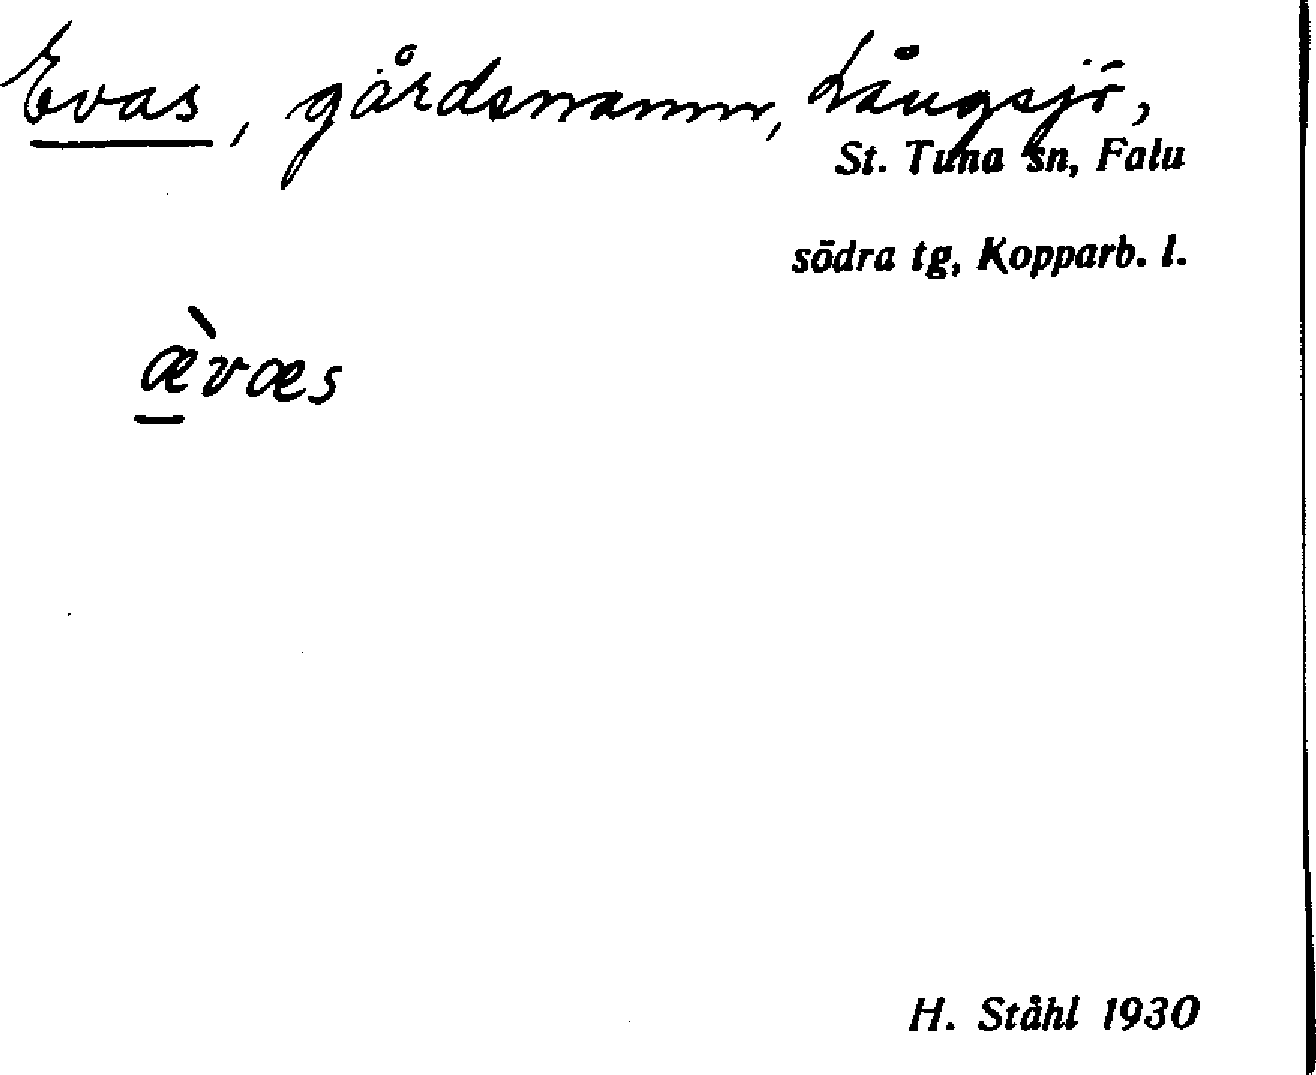 Evas, gårdsnamn, Långsjö,
St. Tuna sn, Falu
södra tg, Kopparb. l.
æ̀væs
H. Ståhl 1930